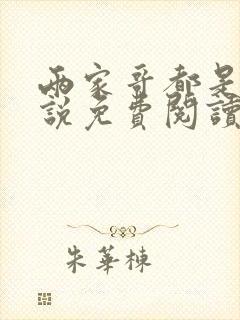 兩家哥都是
說免費閱讀
朱華棟